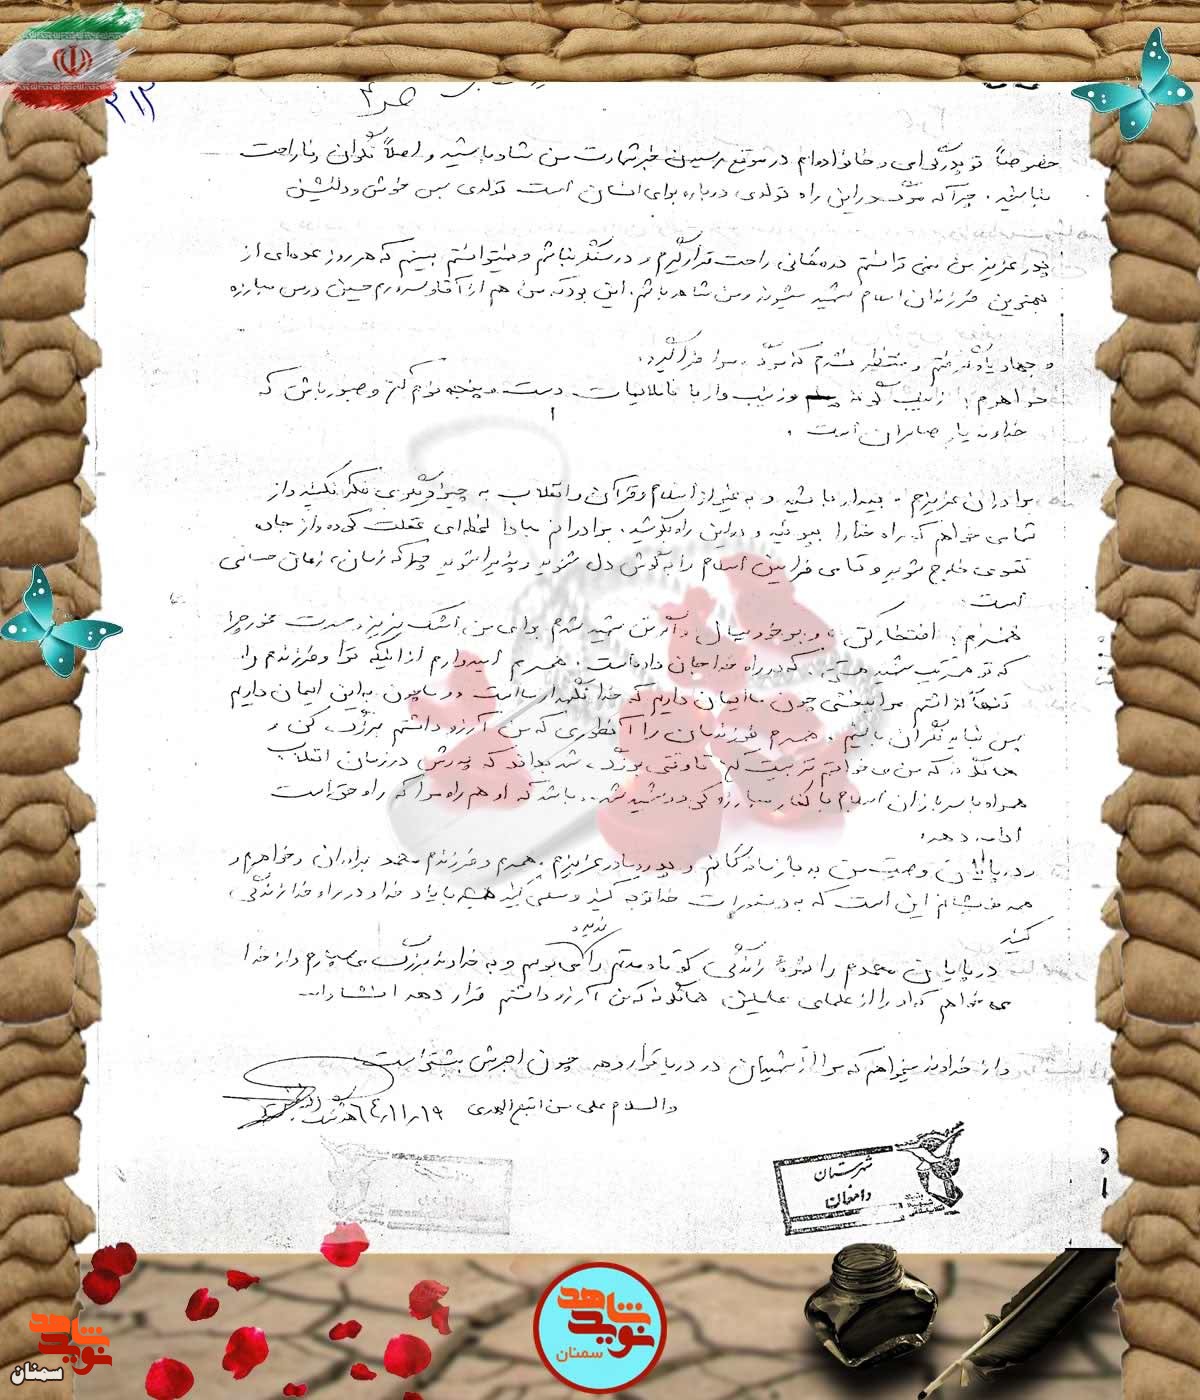 ۲۱۲
ص ۳
خصوصاً تو پدر گرامی و خانواده‌ام در موقع رسیدن خبر شهادت من شاد باشید و اصلاً نگران و ناراحت
نباشید. چرا که مرگ در این راه تولدی دوباره برای انسان است تولدی بس خوش و دلنشین
پدر عزیز من نمی توانستم در مکانی راحت قرار گیرم و در سنگر نباشم و نمیتوانستم ببینم که هر روز عده‌ای از
بهترین فرزندان اسلام شهید میشوند و من شاهد باشم. این بود که من هم از آقا و سرورم حسین درس مبارزه
و جهاد یاد گرفتم و منتظر شدم که مرگ مرا فراگیرد.
خواهرم! زینب گونه و زینب وار با ناملایمات دست و پنجه نرم کن و صبور باش که
خداوند یار صابران است.
برادران عزیزم، بیدار باشید و به غیر از اسلام و قرآن و انقلاب به چیز دیگری فکر نکنید و از
شما می خواهم که راه خدا را بپوئید و در این راه بکوشید. برادرانم مبادا لحظه‌ای غفلت کرده و از جاده
تقوی خارج شوید و تمامی فرامین اسلام را به گوش دل شنوید و پذیرا شوید چرا که زمان، زمان حساسی
است.
همسرم! افتخار کن و بر خود ببال و اگر من شهید شدم برای من اشک نریز و حسرت مخور چرا
که تو همسر شهید هستی. که در راه خدا جان داده است. همسرم امیدوارم از اینکه ترا و فرزندم را
تنها گذاشتم مرا ببخشی چون ما ایمان داریم که خدا نگهدار ماست و ما چون به این ایمان داریم
پس نباید نگران باشیم. همسرم فرزندمان را آنطوری که من آرزو داشتم بزرگ کن و
همانگونه که من می خواهم تربیت کن تا وقتی بزرگ شد بداند که پدرش در زمان انقلاب
همراه با سربازان اسلام با کفار مبارزه کرده و شهید شد.. باشد که او هم راه مرا که راه حق است
ادامه دهد.
و در پایان وصیت من به بازماندگانم و پدر و مادر عزیزم، همسرم و فرزندم محمد برادران و خواهرم و
همه فامیلم این است که به دستورات خدا توجه کنید و سعی کنید همیشه با یاد خدا و در راه خدا زندگی
کنید
در پایان محمدم را نوه زندگی کوتاه مدتم را ندیده می بوسم و به خداوند بزرگ می سپارم و از خدا
می خواهم که او را از علمای عاملین همانگونه که من آرزو داشتم قرار دهد انشاءا...
و از خداوند میخواهم که مرا از شهیدان در دریا قرار دهد چون اجرش بیشتر است
والسلام علی من اتبع الهدی ۶۴،۱۱،۱۹
شهرستان
دامغان
نوید شاهد
سمنان
نوید شاهد
سمنان